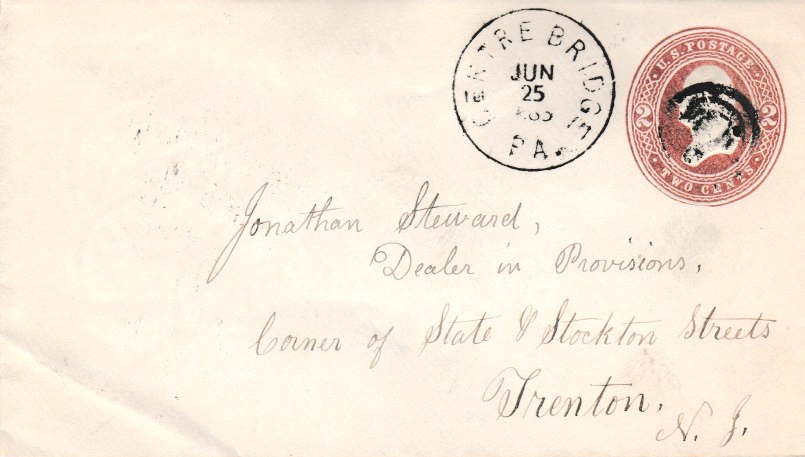 CENTRE BRIDGE
JUN
25
PA.
U.S. POSTAGE
2 2
TWO CENTS
Jonathan Steward,
Dealer in Provisions,
Corner of State & Stockton Streets
Trenton,
N. J.